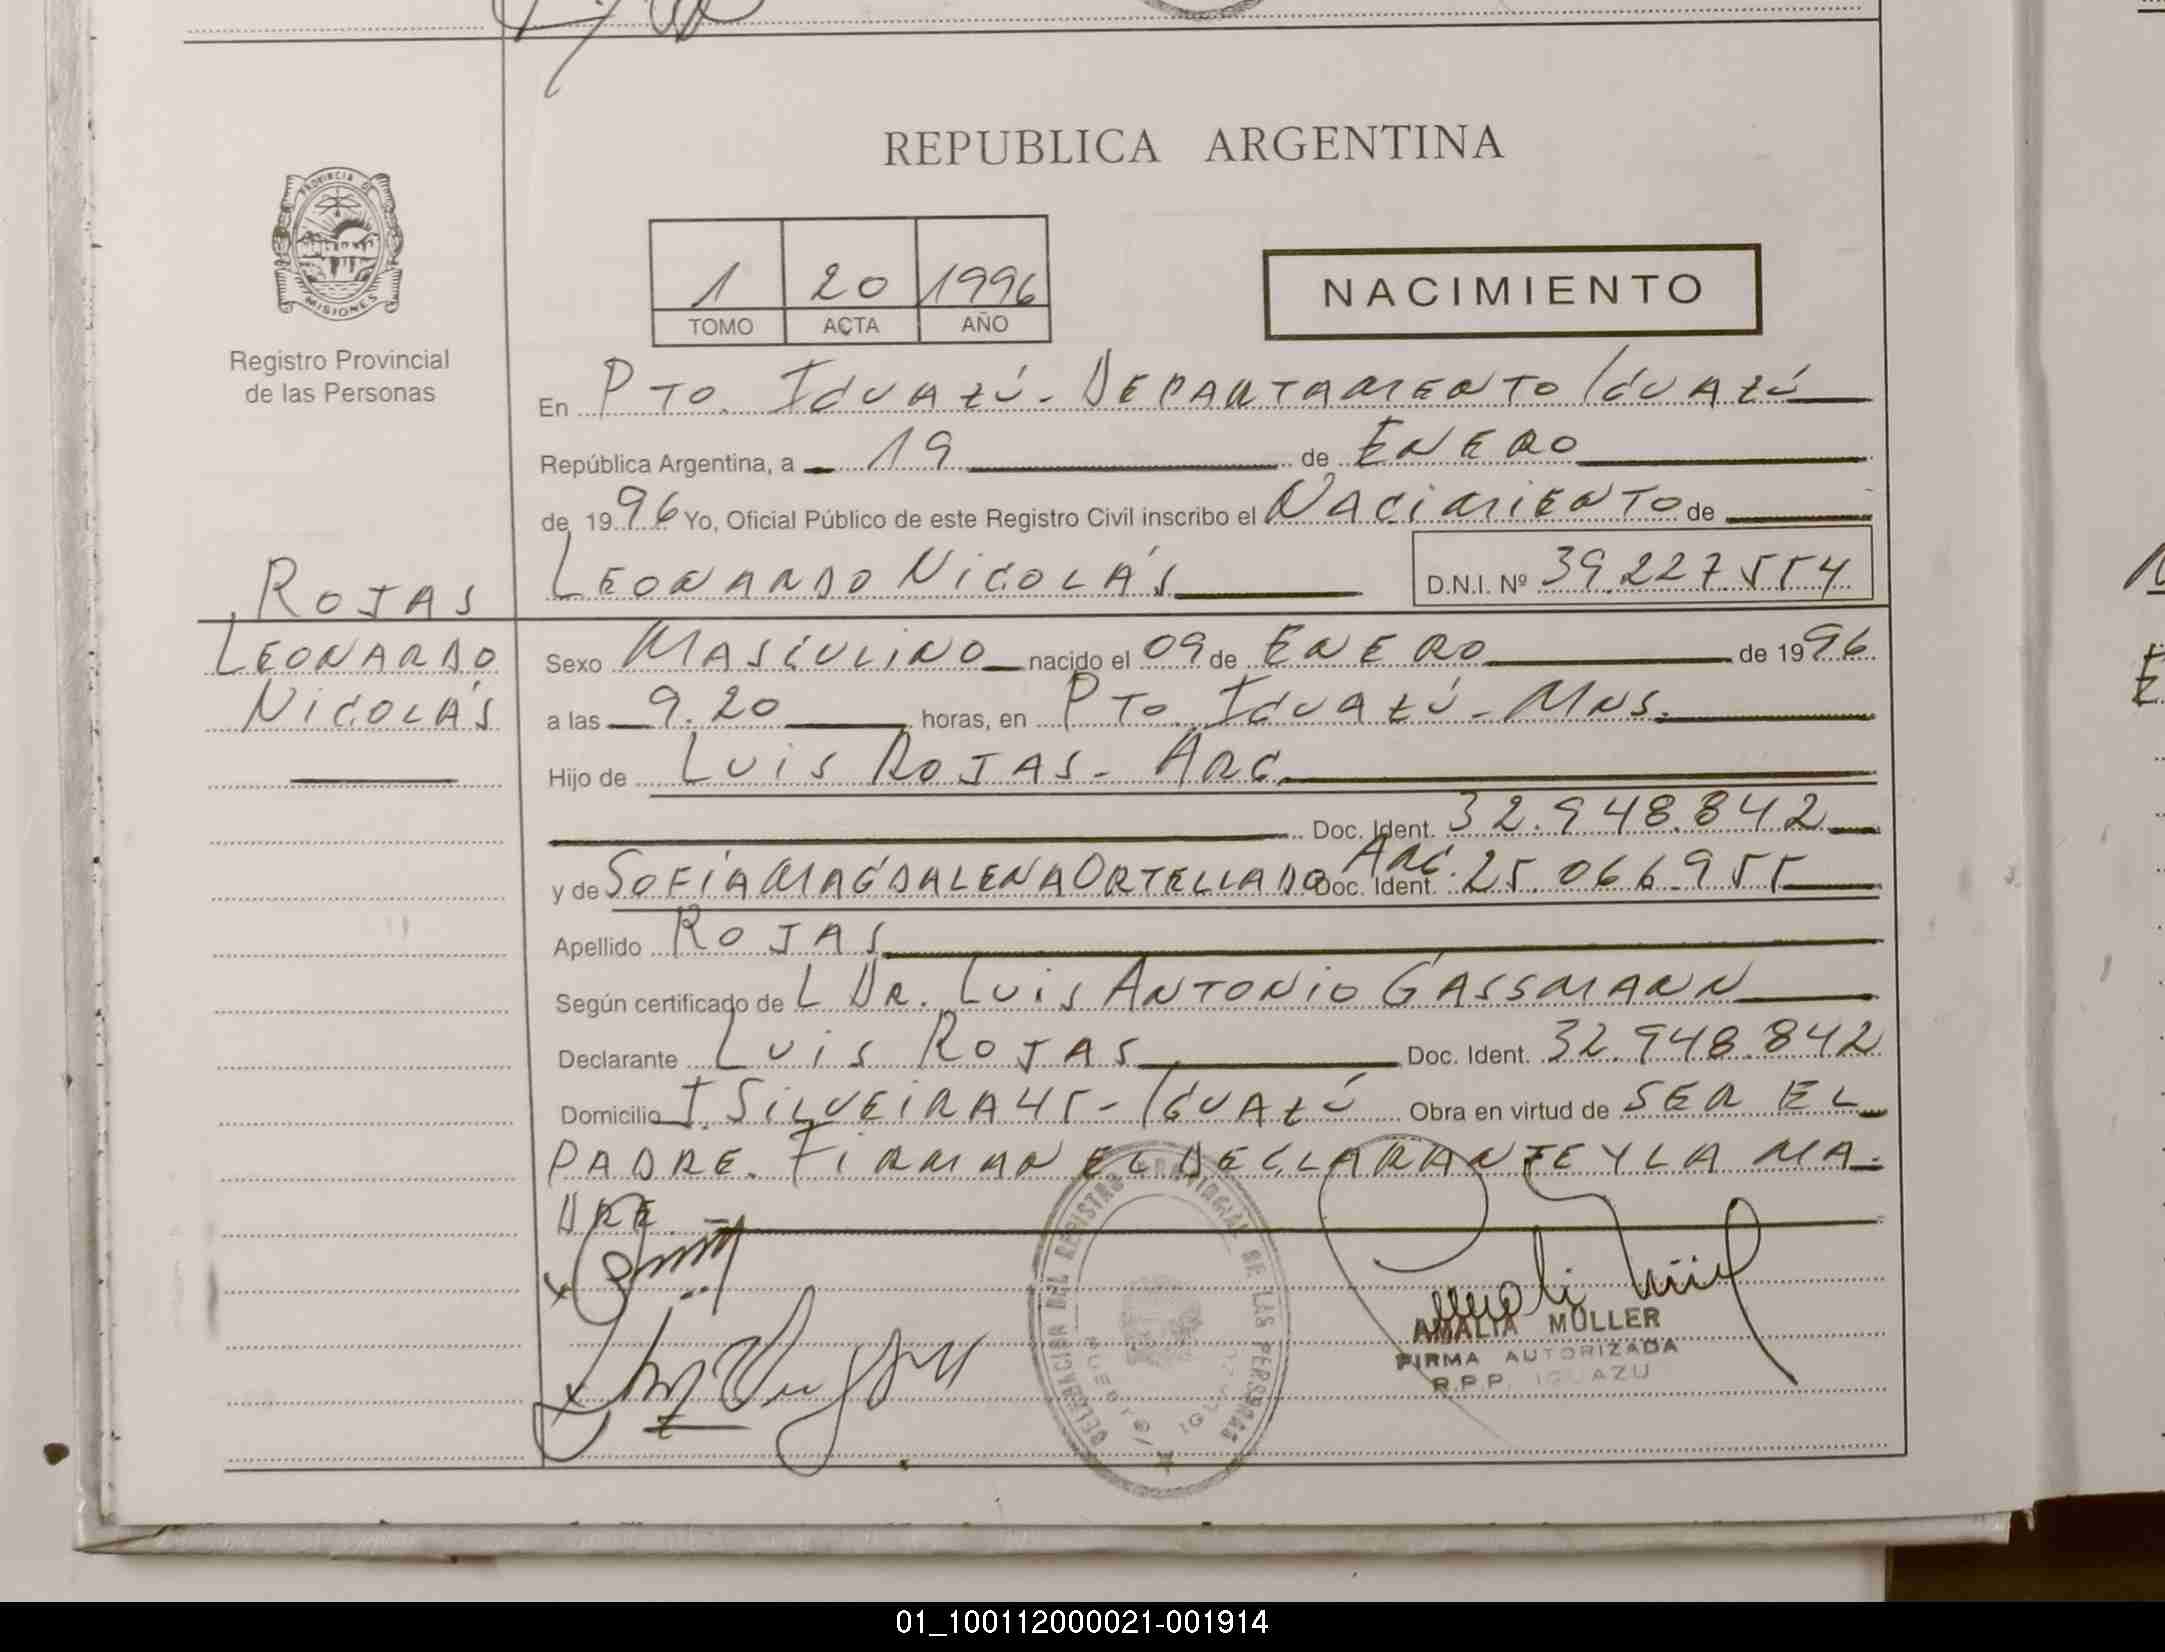 REPUBLICA ARGENTINA
PROVINCIA DE
MISIONES
Registro Provincial
de las Personas
1 20 1996
TOMO ACTA AÑO
NACIMIENTO
En PTO. IGUAZÚ - DEPARTAMENTO IGUAZÚ
República Argentina, a 19 de ENERO
de 1996 Yo, Oficial Público de este Registro Civil inscribo el NACIMIENTO de
LEONARDO NICOLÁS D.N.I. Nº 39.227.554
ROJAS
LEONARDO
NICOLÁS
Sexo MASCULINO nacido el 09 de ENERO de 1996
a las 9.20 horas, en PTO. IGUAZÚ - MNS.
Hijo de LUIS ROJAS - ARG.
Doc. Ident. 32.948.842
y de SOFÍA MAGDALENA ORTELLADO ARG. Doc. Ident. 25.066.955
Apellido ROJAS
Según certificado de L DR. LUIS ANTONIO GASSMANN
Declarante LUIS ROJAS Doc. Ident. 32.948.842
Domicilio T. SILVEIRA 45 - IGUAZÚ Obra en virtud de SER EL
PADRE. FIRMAN EL DECLARANTE Y LA MA-
DRE.
DELEGACION DEL REGISTRO PROVINCIAL DE LAS PERSONAS
PUERTO IGUAZU
AMALIA MULLER
FIRMA AUTORIZADA
R.P.P. IGUAZU
01_100112000021-001914